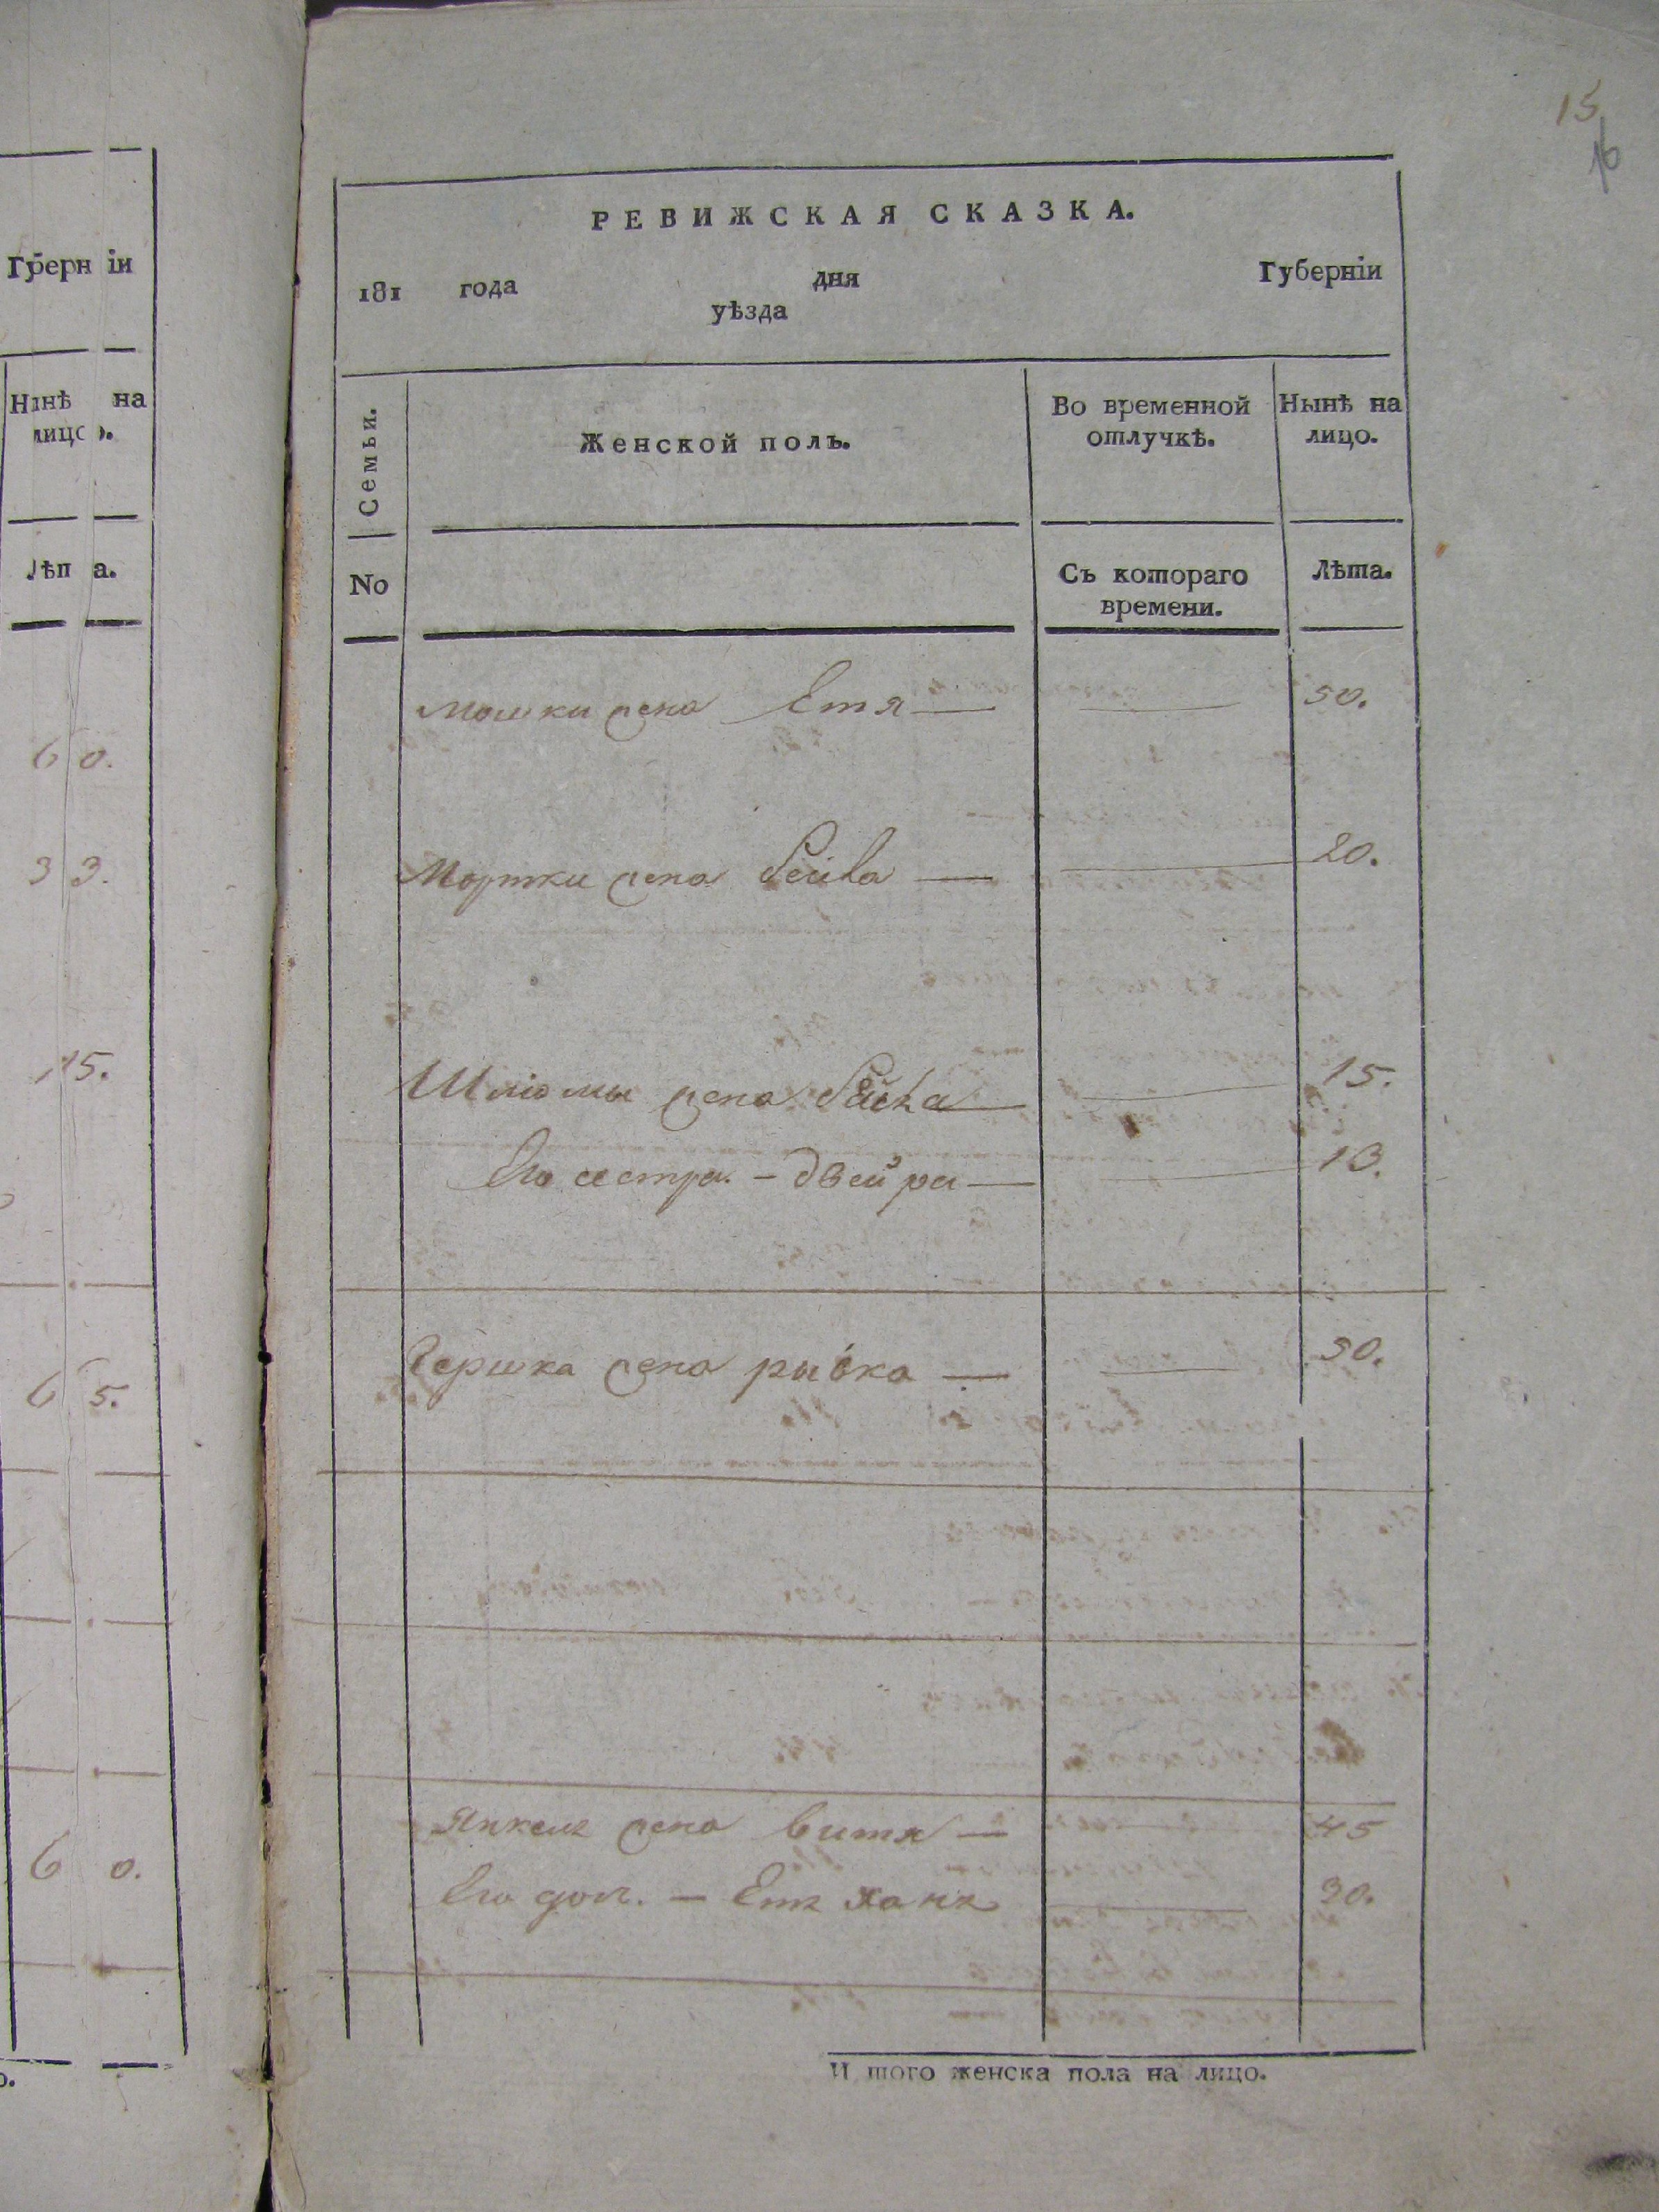 Губерніи
Нынѣ на
лицо.
Лѣта.
60.
33.
15.
65.
60.
15
16
РЕВИЖСКАЯ СКАЗКА.
181 года дня Губерніи
уѣзда
Семьи. Женской полъ. Во временной отлучкѣ. Нынѣ на лицо.
No Съ котораго времени. Лѣта.
Мошки жена Етя — 50.
Мортки жена — 20.
Шліомы жена — 15.
Его сестра — двейра — 13.
Гершка жена рывка — 50.
Янкеля жена витя — 45
Его доч. — Етя хана 30.
И того женска пола на лицо.